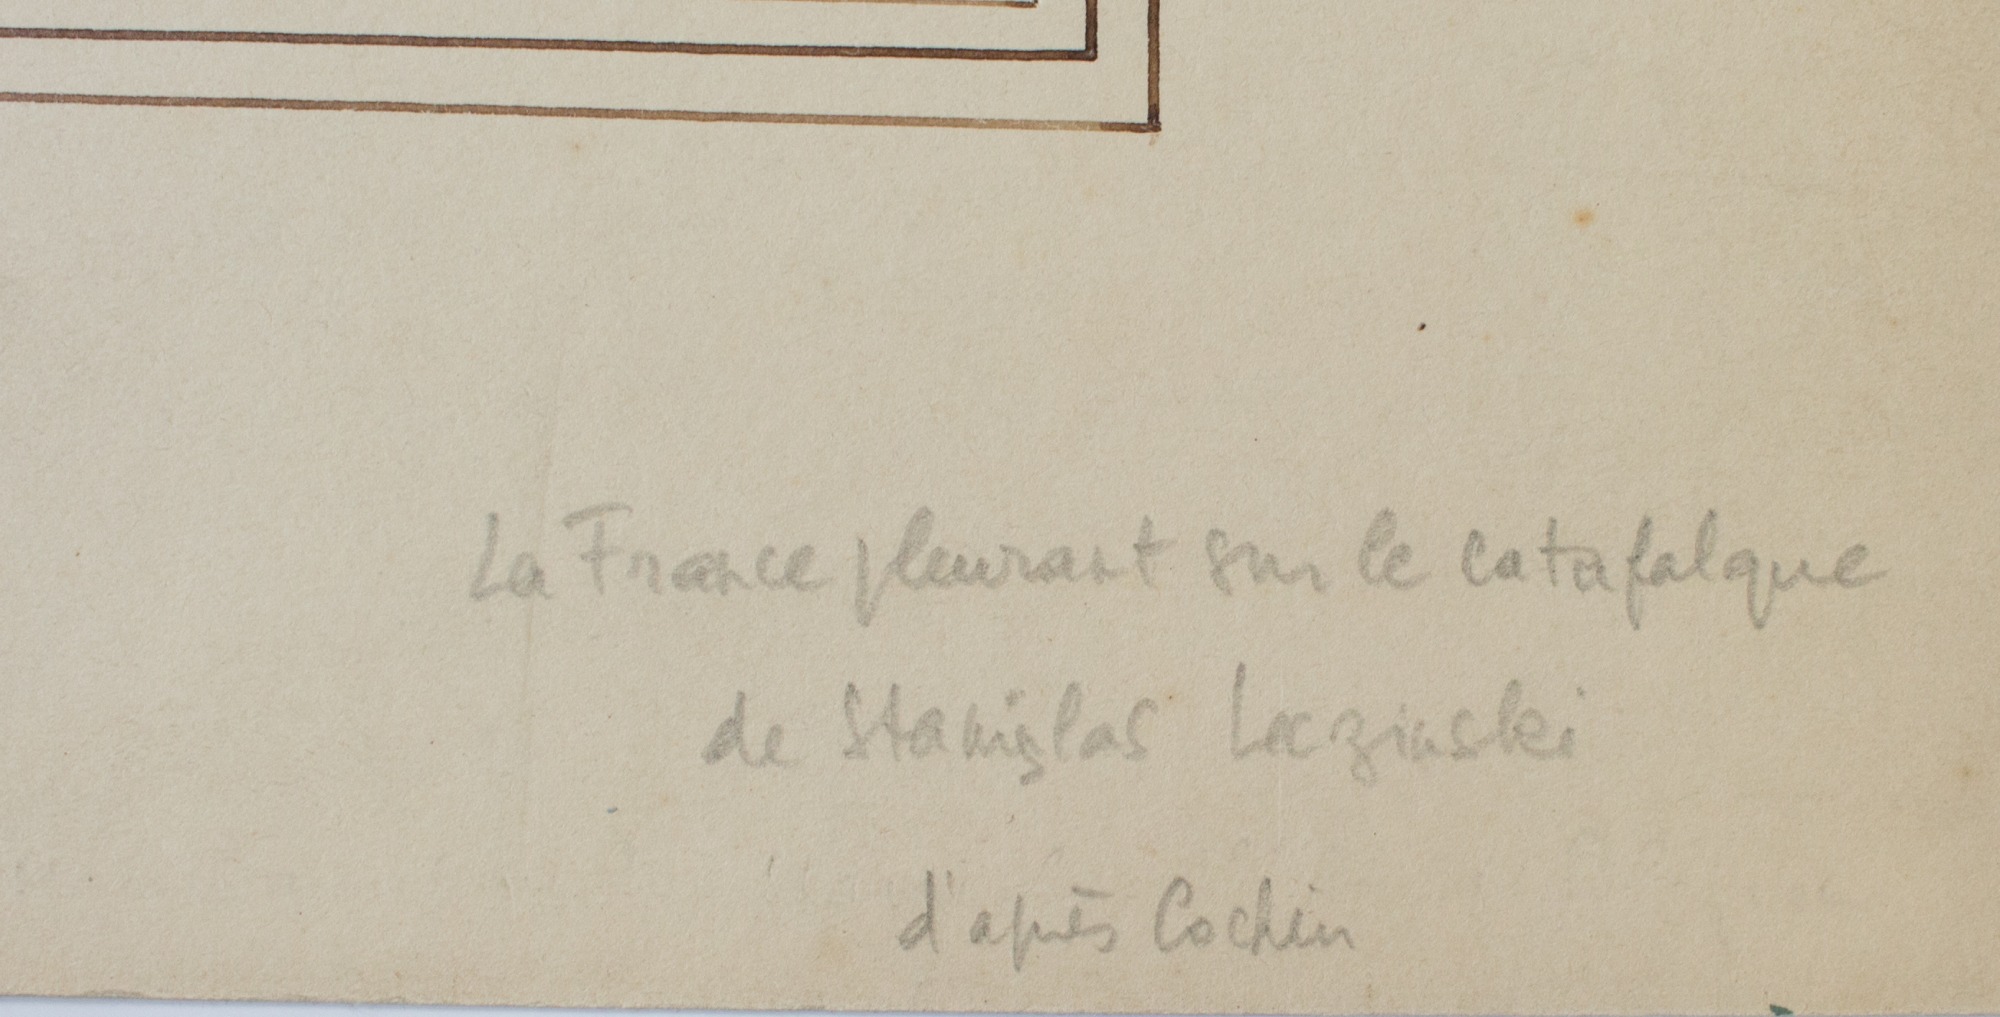 La France pleurant sur le catafalque
de Stanislas Leczinski
d'après Cochin